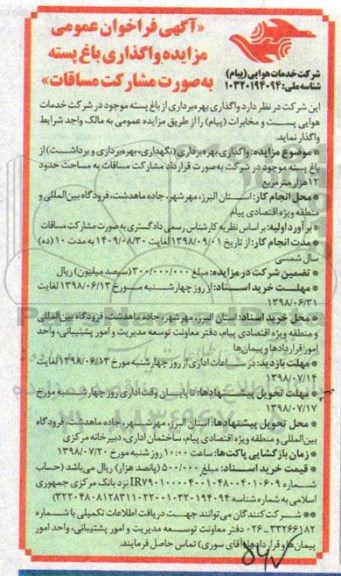 «آگهی فراخوان عمومی
مزایده واگذاری باغ پسته
به صورت مشارکت مساقات»
شرکت خدمات هوایی (پیام)
شناسه ملی: ۱۰۳۲۰۱۹۴۰۹۴
این شرکت در نظر دارد واگذاری بهره‌برداری از باغ پسته موجود در شرکت خدمات
هوایی پست و مخابرات (پیام) را از طریق مزایده عمومی به مالک واجد شرایط
واگذار نماید.
* موضوع مزایده: واگذاری بهره‌برداری (نگهداری، بهره‌برداری و برداشت) از
باغ پسته موجود در شرکت به صورت قرارداد مشارکت مساقات به مساحت حدود
۱۲ هزار مترمربع
* محل انجام کار: استان البرز، مهرشهر، جاده ماهدشت، فرودگاه بین‌المللی و
منطقه ویژه اقتصادی پیام
* برآورد اولیه: بر اساس نظریه کارشناس رسمی دادگستری به صورت مشارکت مساقات
* مدت انجام کار: از تاریخ ۱۳۹۸/۰۹/۰۱ لغایت ۱۴۰۹/۰۸/۳۰ به مدت ۱۰ (ده)
سال شمسی
* تضمین شرکت در مزایده: مبلغ ۳۰۰/۰۰۰/۰۰۰ (سیصد میلیون) ریال
* مهلت خرید اسناد: از روز چهارشنبه مورخ ۱۳۹۸/۰۶/۱۳ لغایت
۱۳۹۸/۰۶/۳۱
* محل خرید اسناد: استان البرز، مهرشهر، جاده ماهدشت، فرودگاه بین‌المللی
و منطقه ویژه اقتصادی پیام، دفتر معاونت توسعه مدیریت و امور پشتیبانی، واحد
امور قراردادها و پیمان‌ها
* مهلت بازدید: در ساعات اداری از روز چهارشنبه مورخ ۱۳۹۸/۰۶/۱۳ لغایت
۱۳۹۸/۰۷/۱۴
* مهلت تحویل پیشنهادها: تا پایان وقت اداری روز چهارشنبه مورخ
۱۳۹۸/۰۷/۱۷
* محل تحویل پیشنهادها: استان البرز، مهرشهر، جاده ماهدشت، فرودگاه
بین‌المللی و منطقه ویژه اقتصادی پیام، ساختمان اداری، دبیرخانه مرکزی
* زمان بازگشایی پاکت‌ها: ساعت ۱۰:۰۰ روز شنبه مورخ ۱۳۹۸/۰۷/۲۰
* قیمت خرید اسناد: مبلغ ۵۰۰/۰۰۰ (پانصد هزار) ریال می‌باشد (حساب
شماره نزد بانک مرکزی جمهوری
اسلامی به شماره شناسه
** شرکت کنندگان می‌توانند جهت دریافت اطلاعات تکمیلی با شماره
۰۲۶-۳۳۲۶۶۱۸۲ دفتر معاونت توسعه مدیریت و امور پشتیبانی، واحد امور
پیمان‌ها و قراردادها (آقای سوری) تماس حاصل فرمایند.